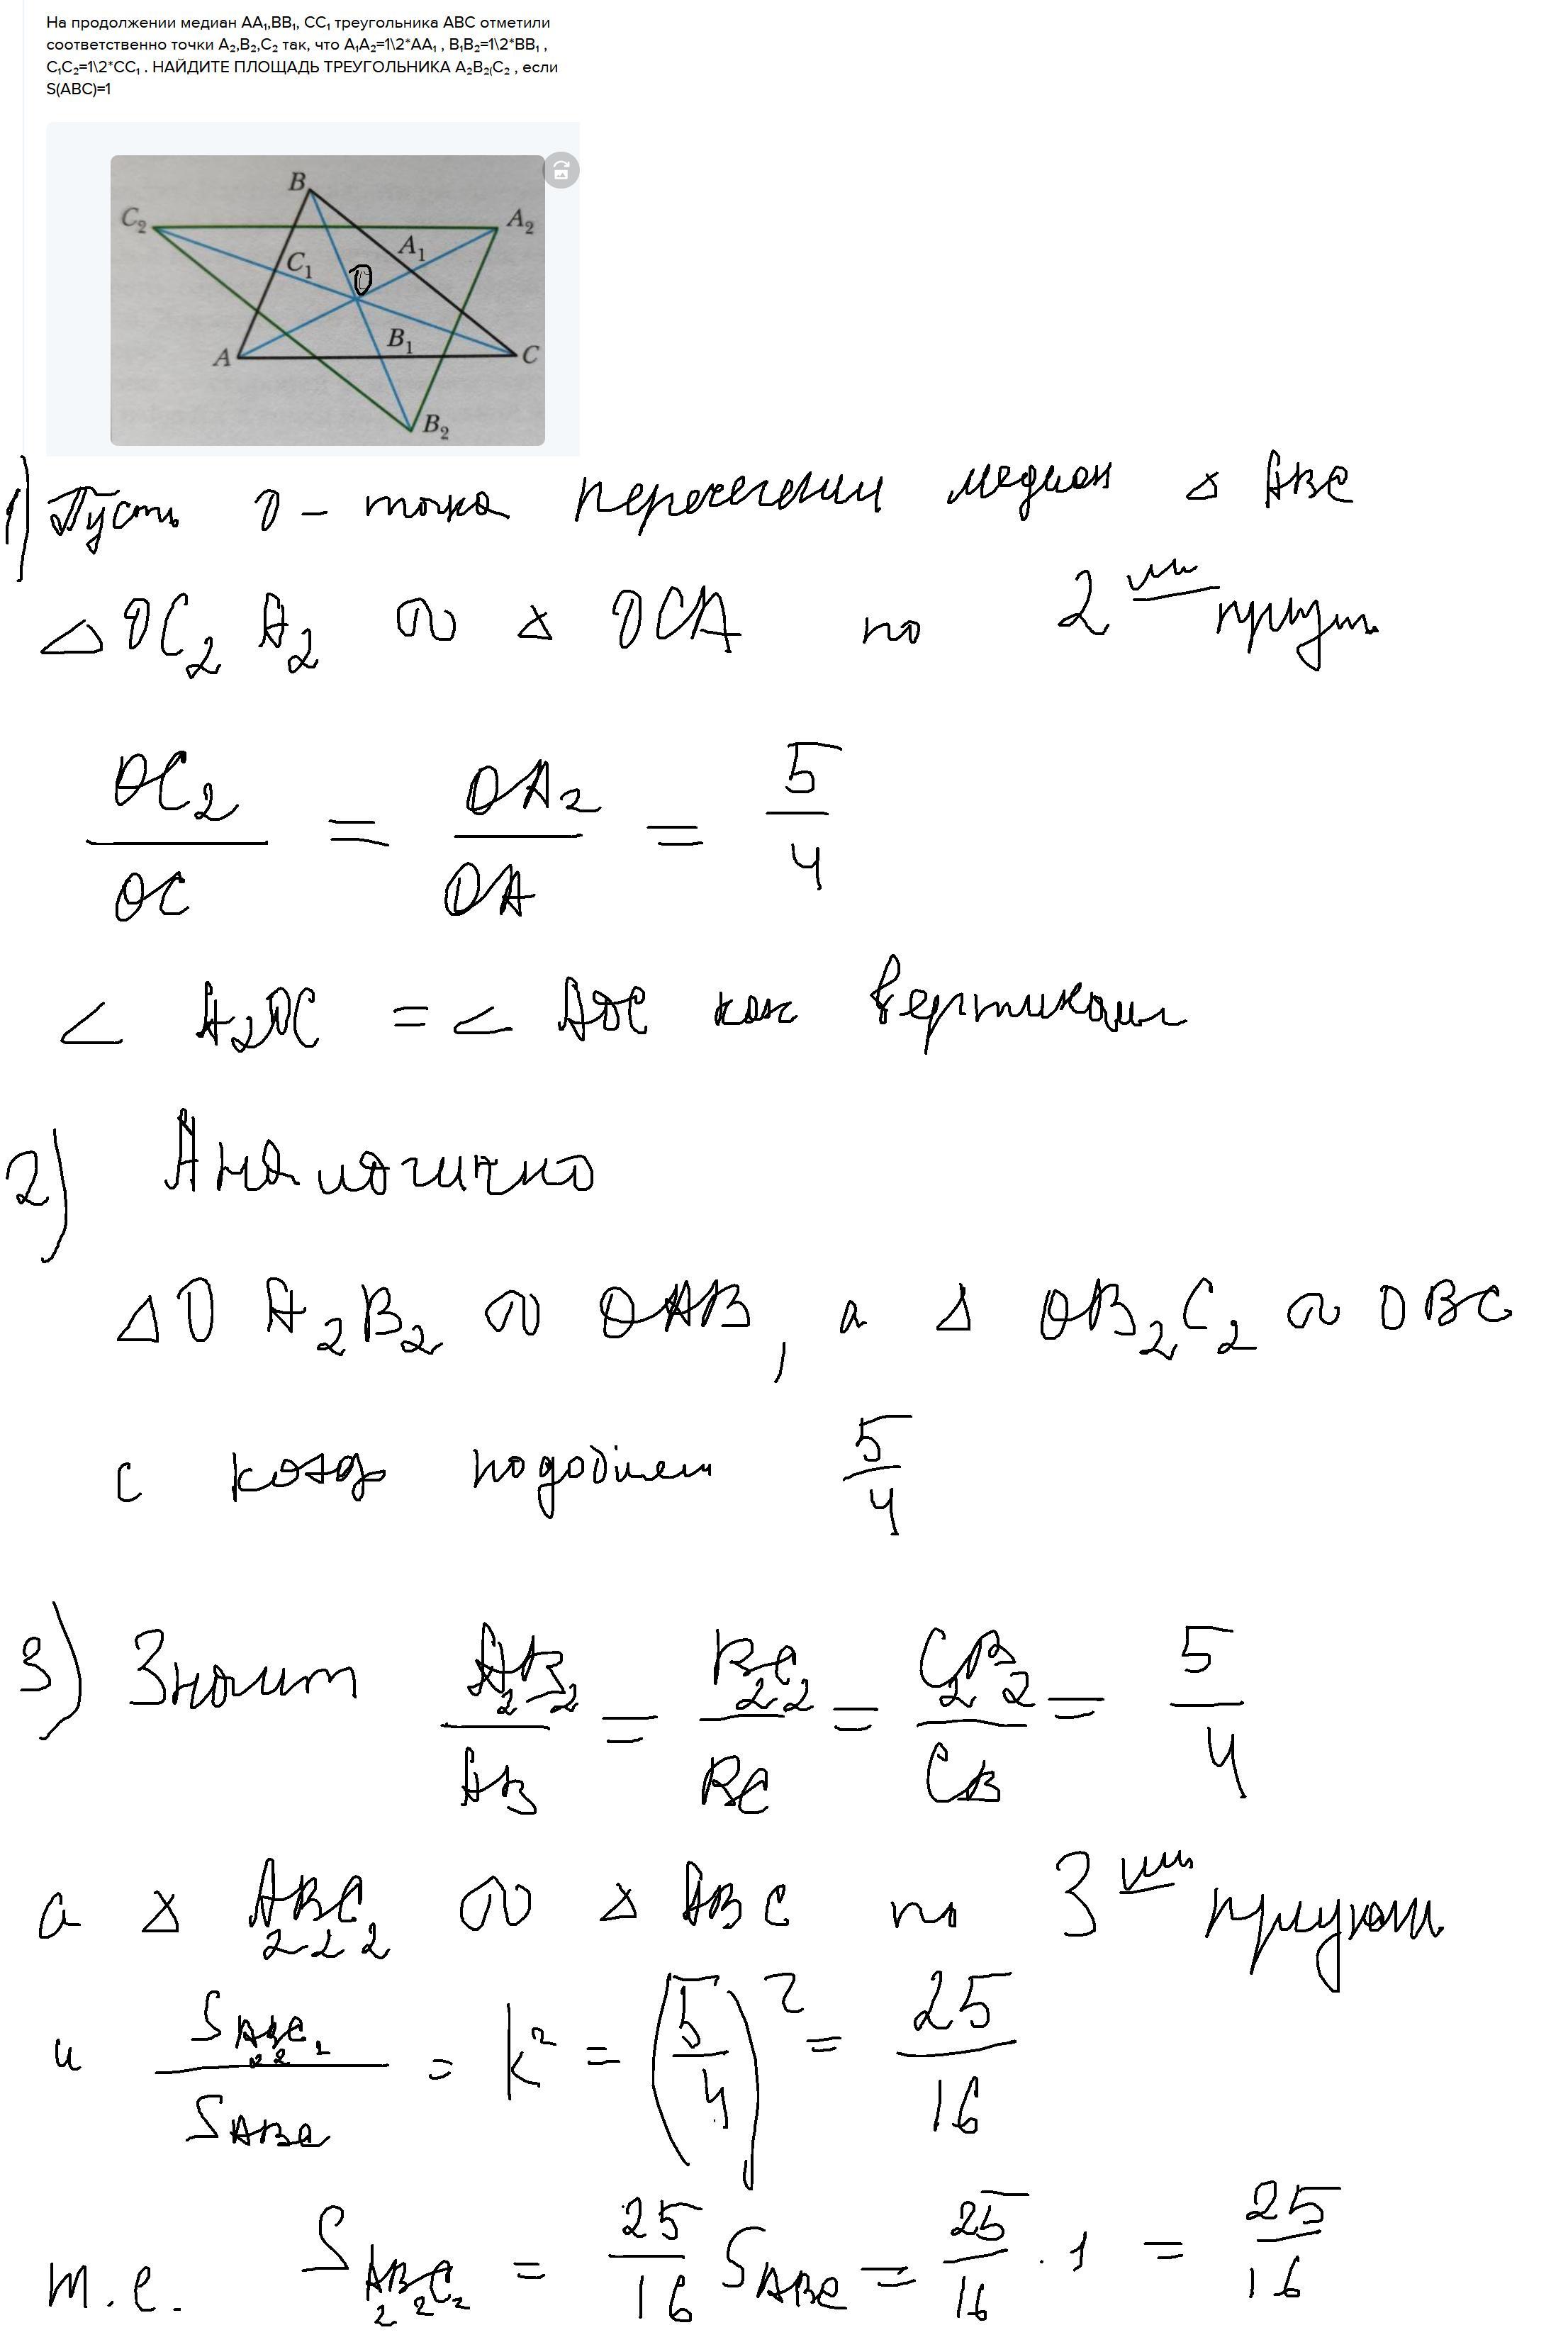 На продолжении медиан AA₁,BB₁, CC₁ треугольника ABC отметили
соответственно точки A₂,B₂,C₂ так, что A₁A₂=1\2*AA₁ , B₁B₂=1\2*BB₁ ,
C₁C₂=1\2*CC₁ . НАЙДИТЕ ПЛОЩАДЬ ТРЕУГОЛЬНИКА A₂B₂(C₂ , если
S(ABC)=1
B
C₂
A₂
A₁
C₁
O
B₁
A
C
B₂
1) Пусть O - точка пересечения медиан △ ABC
△ OC₂A₂ ∾ △ OCA по 2
OC₂/OC = OA₂/OA = 5/4
∠ A₂OC = ∠ AOC как
2) Аналогично
△ O A₂B₂ ∾ OAB, а △ OB₂C₂ ∾ OBC
с коэф подобием 5/4
3) Значит A₂B₂/AB = B₂C₂/BC = C₂B₂/CB = 5/4
а △ A₂B₂C₂ ∾ △ ABC по 3
и S A₂B₂C₂/S ABC = k² = (5/4)² = 25/16
т.е. S A₂B₂C₂ = 25/16 S ABC = 25/16 · 1 = 25/16